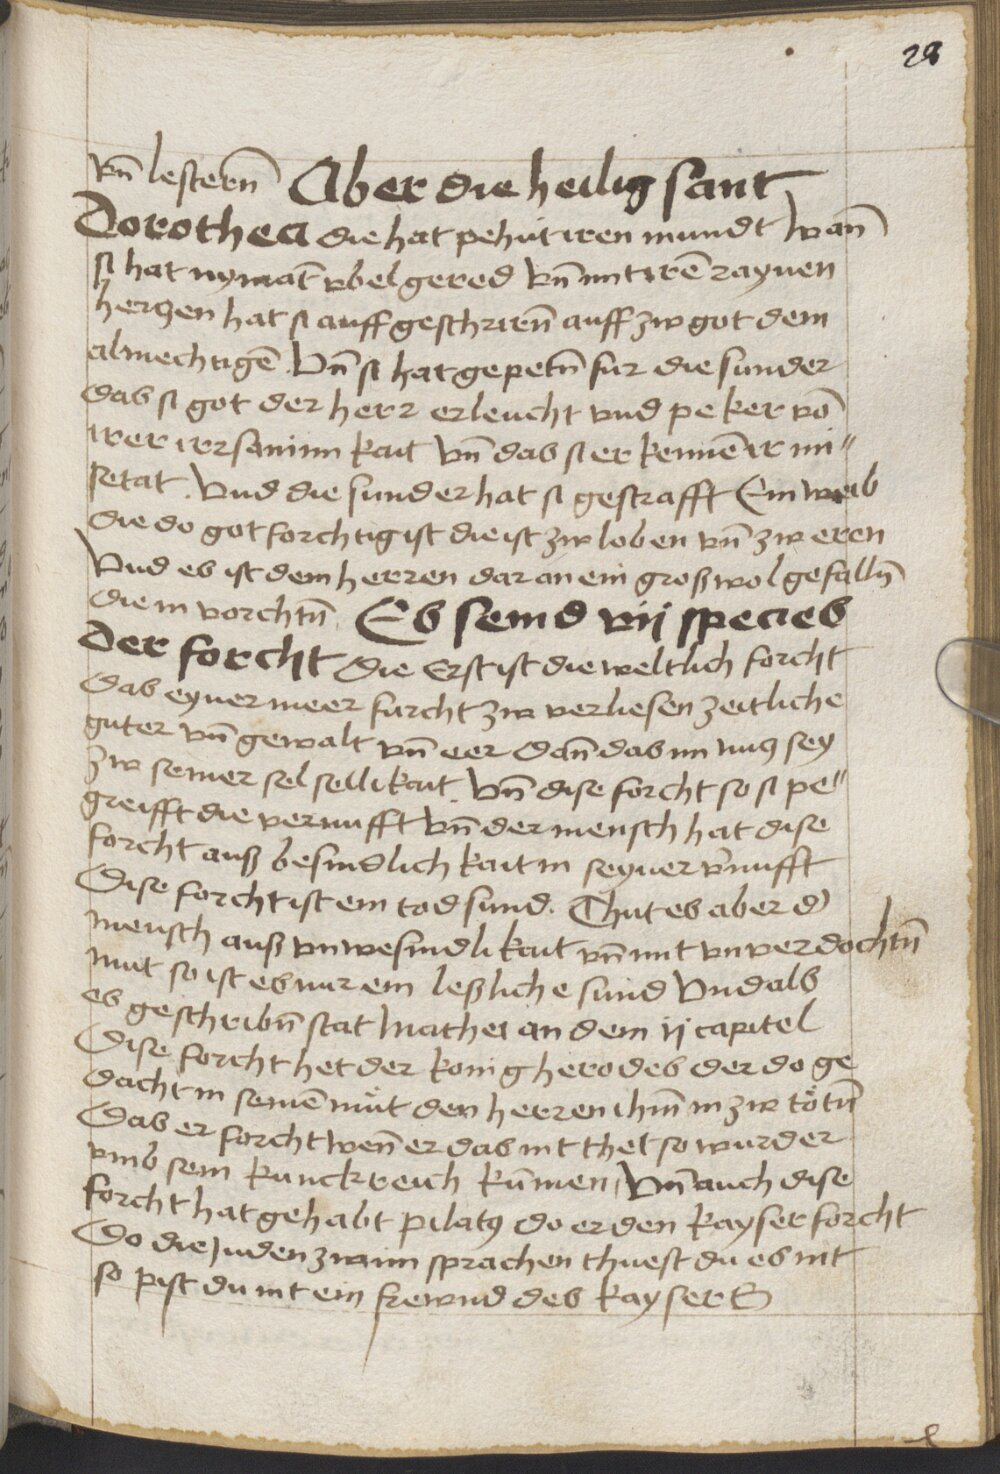 28
vn̄ lestern̄ Aber die heilig sant
Dorothea die hat pehut iren mundt wan̄
si hat nymāt vbel gered vn̄ mit irē raynen
herczen hat si auff geschrien̄ auff zw got dem
almechtigē. Vn̄ si hat gepetn̄ fur die sunder
das si got der herr erleucht vnd peker vō
irer irrsamm kait vn̄ das si er kennē ir mi〃
setat. Vnd die sunder hat si gestrafft Ein weib
die do got forchtig ist die ist zw loben vn̄ zw eren
Vnd es ist dem herren dar an ein groß wol gefalln̄
die in vorchtn̄. Es seind vij species
Der forcht Die Erst ist die weltlich forcht
das eyner meer furcht zw verliesen zeitliche
guter vn̄ gewalt vn̄ eer dan̄ das im nucz sey
zw seiner sel sellikait. Vn̄ dise forcht so si pe〃
greifft die vernufft vn̄ der mensch hat dise
forcht auß besindlich kait in seyner v̄nufft
Dise forcht ist ein tod sund. Thut es aber d̄
mensch auß vnwesindlikait vn̄ mit vnverdochtn̄
mut so ist es nur ein leßliche sund Vnd als
es geschribn̄ stat Mathei an dem ij capitel
Dise forcht het der konig herodes der do ge
dacht in seinē mut den herren ihm̄ in zw totn̄
Das er forcht wen̄ er das nit thet so wurd er
vmb sein kunckreich kūmen, Vn̄ auch dise
forcht hat gehabt pilatꝰ do er den kayser forcht
Do die Juden zw im sprachen thuest du es nit
so pist du nit ein frewnd des kaysers